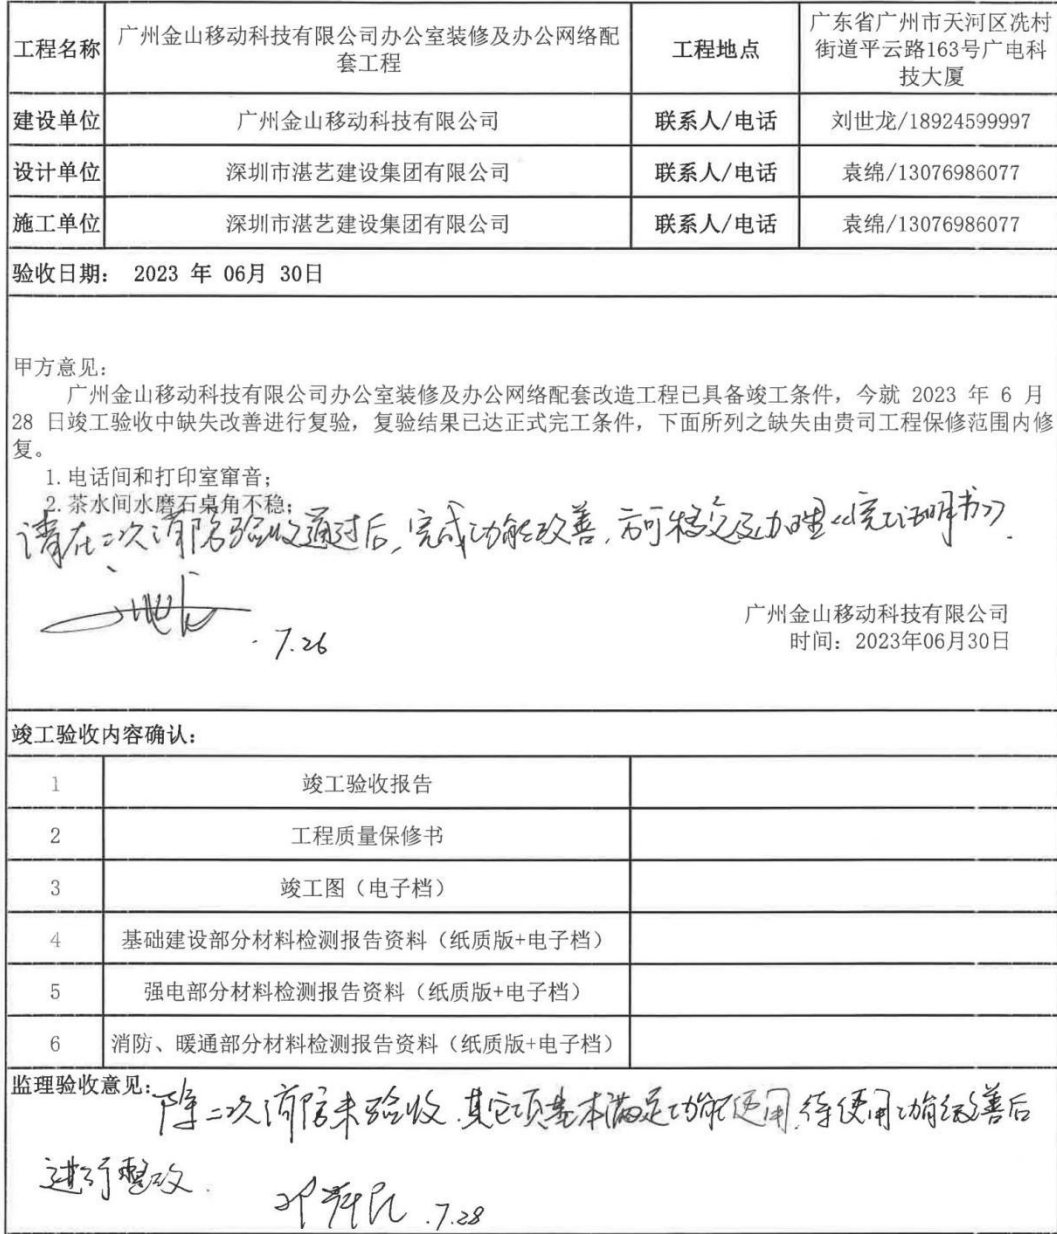 工程名称 广州金山移动科技有限公司办公室装修及办公网络配 工程地点 广东省广州市天河区冼村
套工程 街道平云路163号广电科
技大厦
建设单位 广州金山移动科技有限公司 联系人/电话 刘世龙/18924599997
设计单位 深圳市湛艺建设集团有限公司 联系人/电话 袁绵/13076986077
施工单位 深圳市湛艺建设集团有限公司 联系人/电话 袁绵/13076986077
验收日期： 2023 年 06月 30日
甲方意见：
广州金山移动科技有限公司办公室装修及办公网络配套改造工程已具备竣工条件，今就 2023 年 6 月
28 日竣工验收中缺失改善进行复验，复验结果已达正式完工条件，下面所列之缺失由贵司工程保修范围内修
复。
1.电话间和打印室窜音；
2.茶水间水磨石桌角不稳；
请在二次消防验收通过后，完成功能改善，方可移交及办理《完工证明书》.
7.26
广州金山移动科技有限公司
时间：2023年06月30日
竣工验收内容确认：
1 竣工验收报告
2 工程质量保修书
3 竣工图（电子档）
4 基础建设部分材料检测报告资料（纸质版+电子档）
5 强电部分材料检测报告资料（纸质版+电子档）
6 消防、暖通部分材料检测报告资料（纸质版+电子档）
监理验收意见：
除二次消防未验收，其它项基本满足功能使用，待使用功能改善后
进行整改.
.7.28